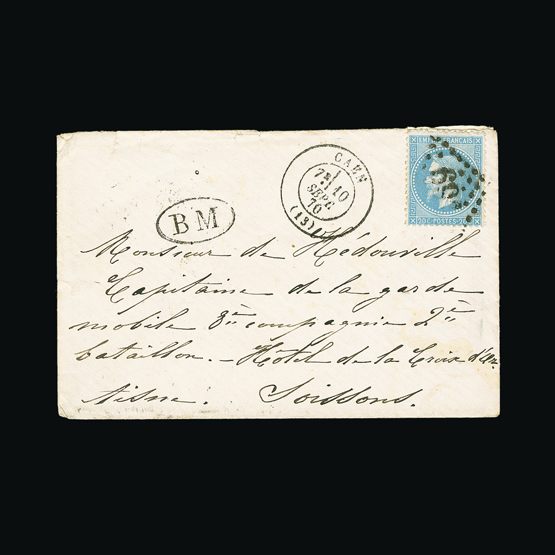 EMPIRE FRANÇAIS
20 C POSTES 20 C
CAEN
7E 10
SEPT
70
(13)
BM
Monsieur de Hédouville
Capitaine de la garde
mobile 8e compagnie 2e
bataillon. - Hôtel de la Croix d'Or
Aisne. Soissons.